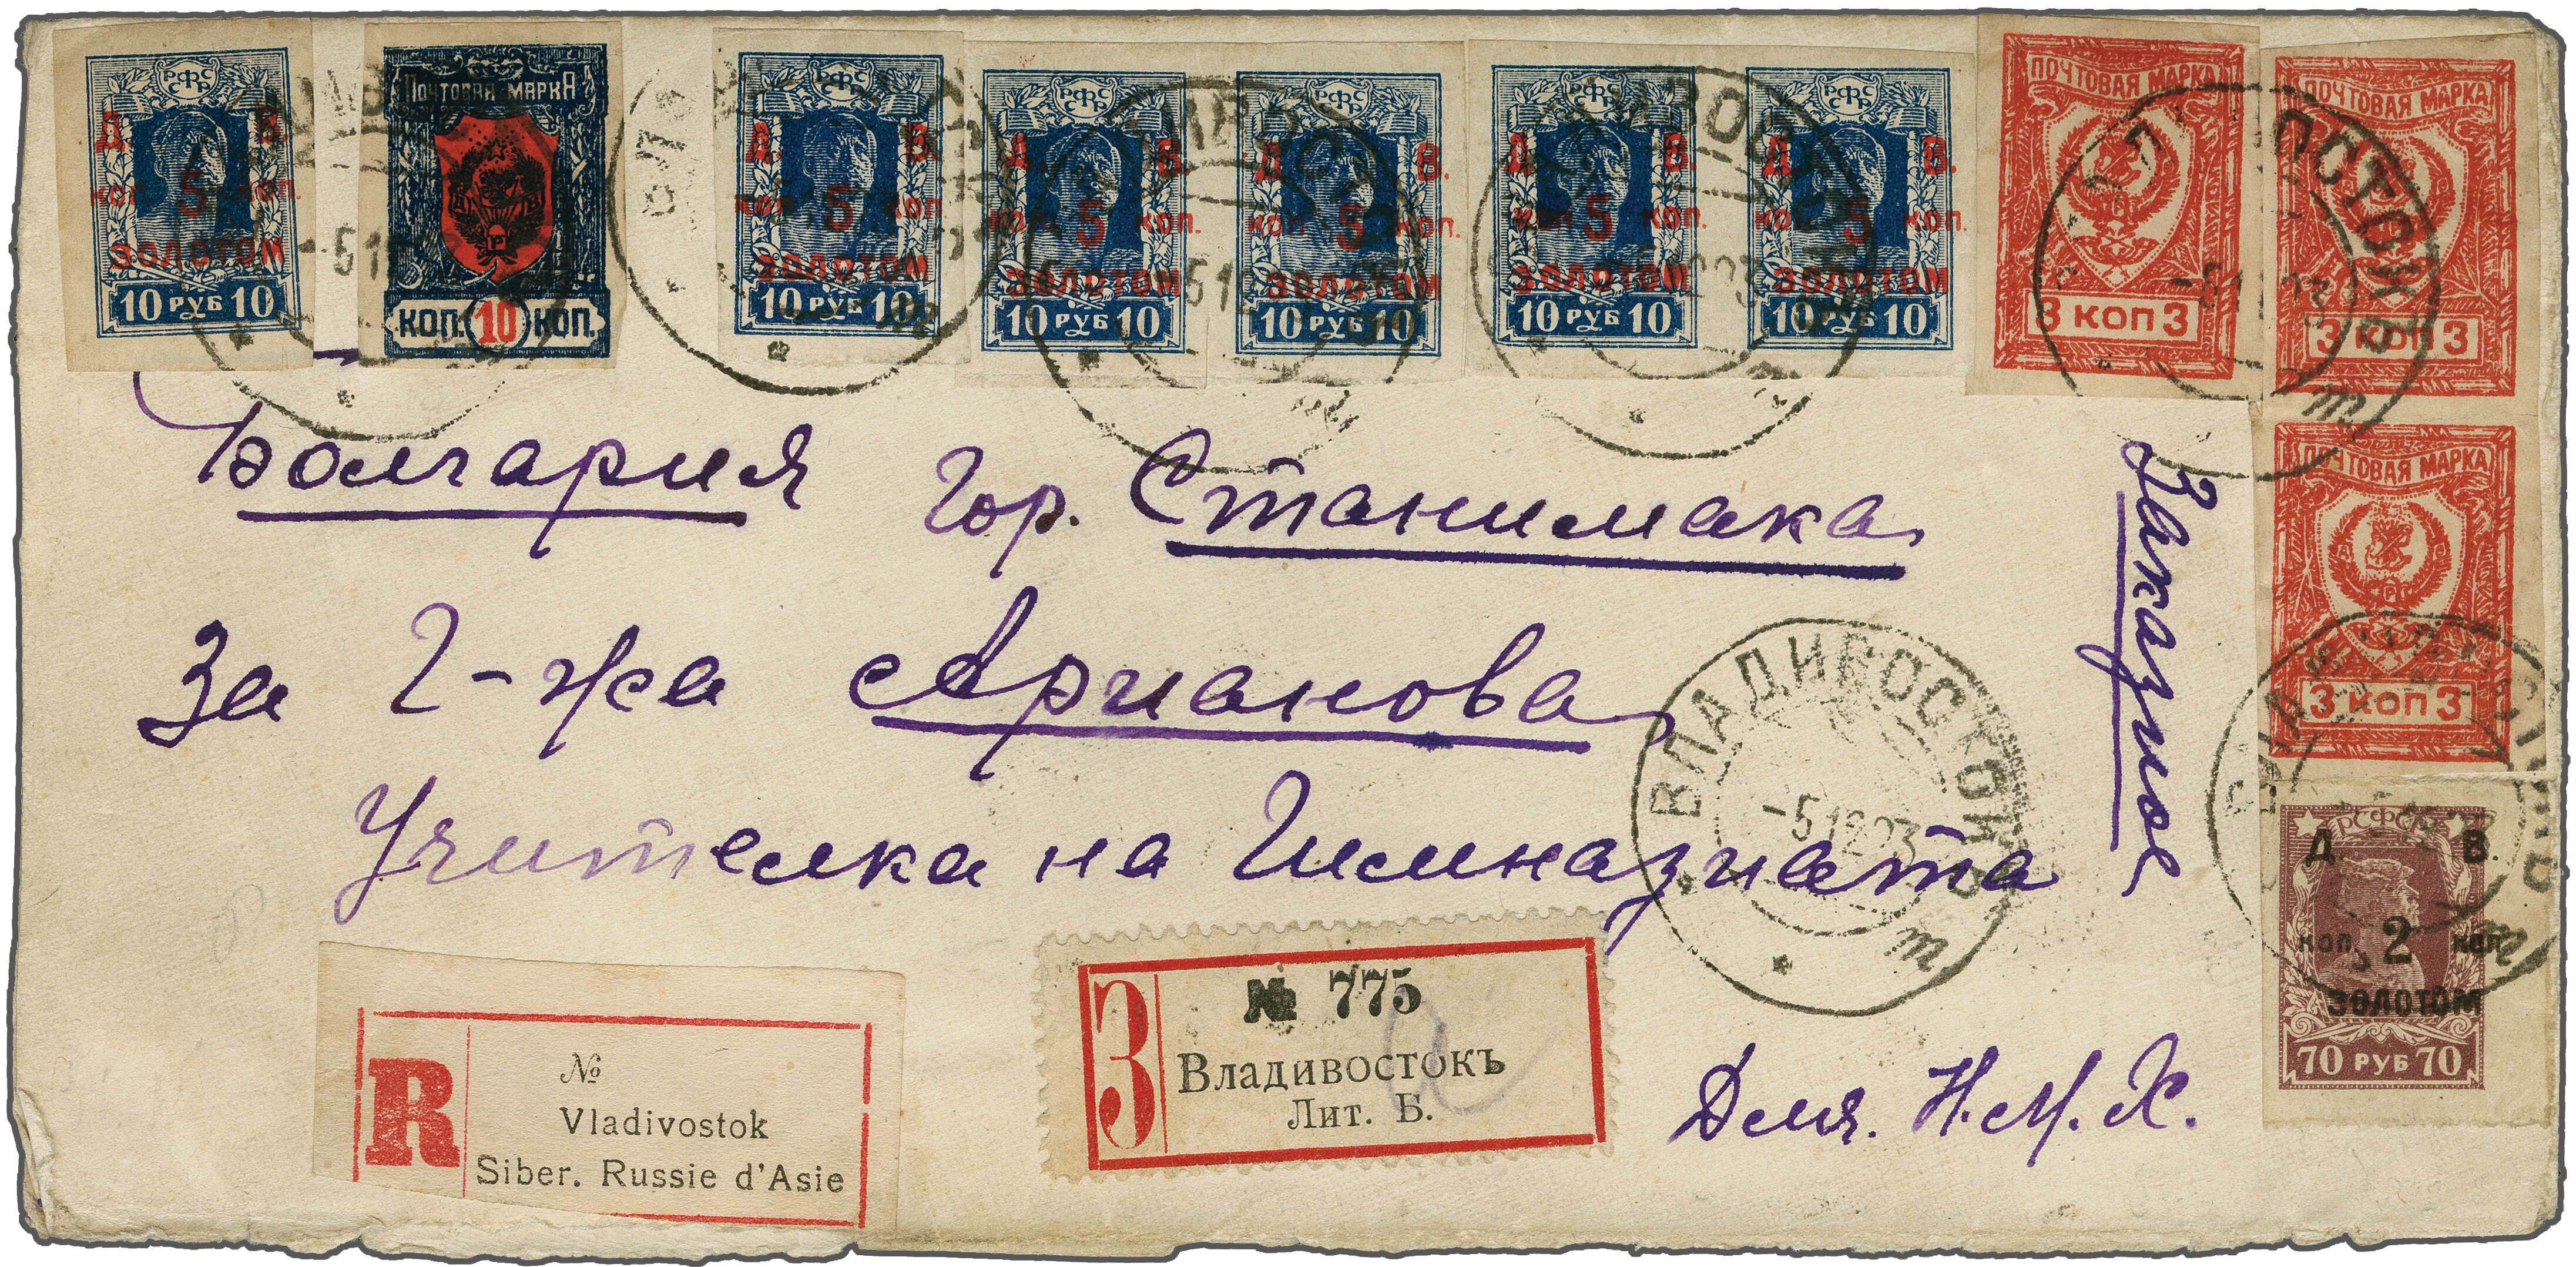 РСФСР
Д. В.
коп. 5 коп.
ЗОЛОТОМ
10 РУБ 10
ПОЧТОВАЯ МАРКА
Д В
Р
КОП. 10 КОП.
РСФСР
Д. В.
коп. 5 коп.
ЗОЛОТОМ
10 РУБ 10
РСФСР
Д. В.
коп. 5 коп.
ЗОЛОТОМ
10 РУБ 10
РСФСР
Д. В.
коп. 5 коп.
ЗОЛОТОМ
10 РУБ 10
РСФСР
Д. В.
коп. 5 коп.
ЗОЛОТОМ
10 РУБ 10
РСФСР
Д. В.
коп. 5 коп.
ЗОЛОТОМ
10 РУБ 10
ПОЧТОВАЯ МАРКА
3 КОП 3
ПОЧТОВАЯ МАРКА
3 КОП 3
ПОЧТОВАЯ МАРКА
3 КОП 3
РСФСР
Д. В.
коп. 2 коп.
ЗОЛОТОМ
70 РУБ 70
Болгария гор. Станимака
За г-жа Арианова
Учителка на Гимназиата
Заказное
ВЛАДИВОСТОК
-5 12 23
R
№
Vladivostok
Siber. Russie d'Asie
З
№ 775
Владивостокъ
Лит. Б.
Для. Н. М. Х.